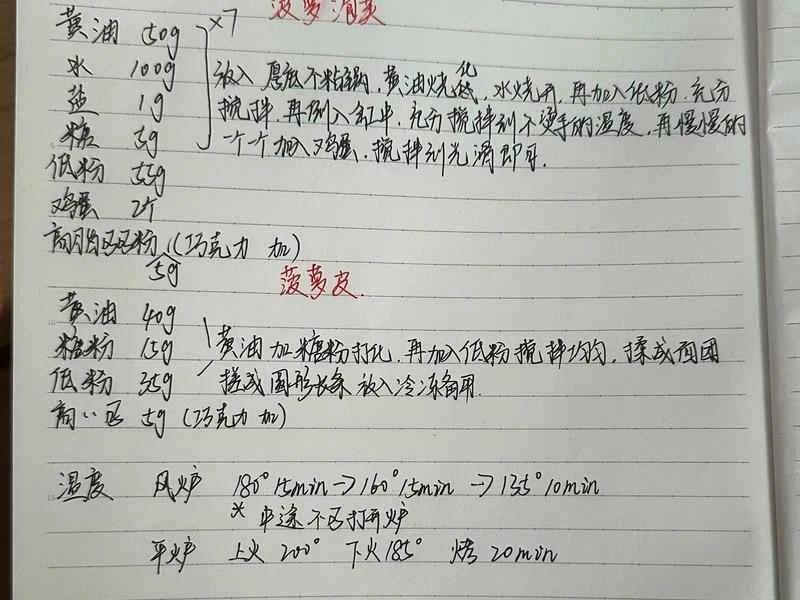 菠萝泡芙
黄油 50g ×7
水 100g 放入厚底不粘锅,黄油烧化,水烧开,再加入低粉,充分
盐 1g 搅拌,再倒入缸中,充分搅拌到不烫手的温度,再慢慢的
糖 5g 一个一个加入鸡蛋,搅拌到光滑即可.
低粉 55g
鸡蛋 2个
高脂可可粉 (巧克力 加)
5g
菠萝皮.
黄油 40g
糖粉 15g 黄油加糖粉打化,再加入低粉搅拌均匀,揉成面团
低粉 35g 搓成圆形长条放入冷冻备用.
高 可 5g (巧克力 加)
温度 风炉 180° 15min → 160° 15min → 135° 10min
* 中途不可打开炉
平炉 上火 200° 下火 185° 烤 20min